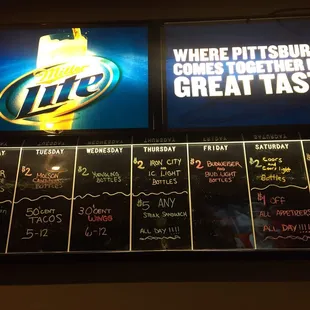 Miller
Lite
WHERE PITTSBUR
COMES TOGETHER
GREAT TAS
TUESDAY
WEDNESDAY
THURSDAY
FRIDAY
SATURDAY
$2 MOLSON
BOTTLES
$2 YUENGLING
BOTTLES
$2 IRON CITY
AND
I.C. LIGHT
BOTTLES
$2 BUDWEISER
AND
BUD LIGHT
BOTTLES
$2 Coors
AND
Coors Light
BOTTLES
50¢ENT
TACOS
5-12
30¢ENT
WINGS
$5 ANY
STEAK SANDWICH
ALL DAY!!!
$1 OFF
ALL APPETIZERS
ALL DAY!!!!